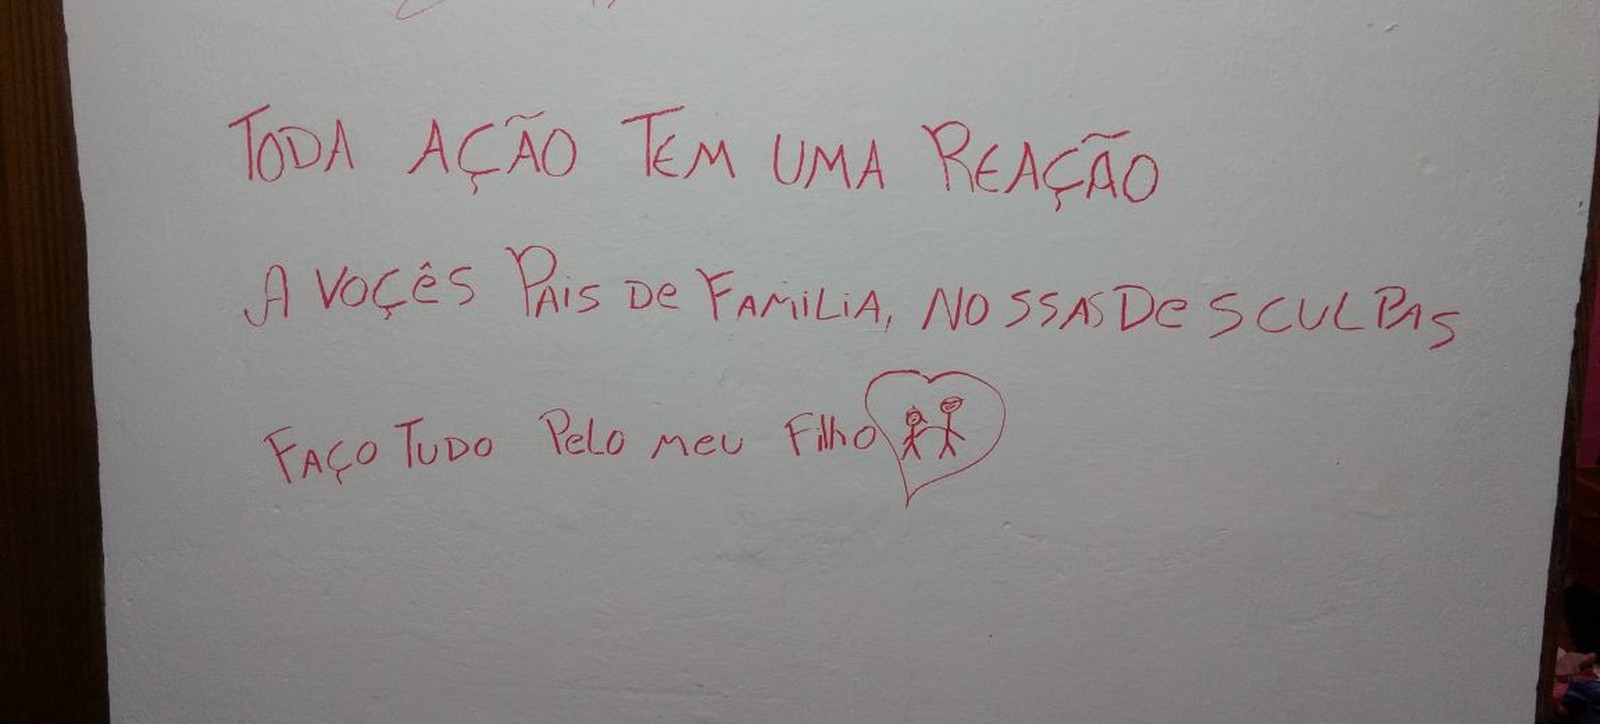 TODA AÇÃO TEM UMA REAÇÃO
A VOÇêS PAiS De FAMiLiA, NOSSAS DeSCULPAS
FAÇO TUDO Pelo meu Filho